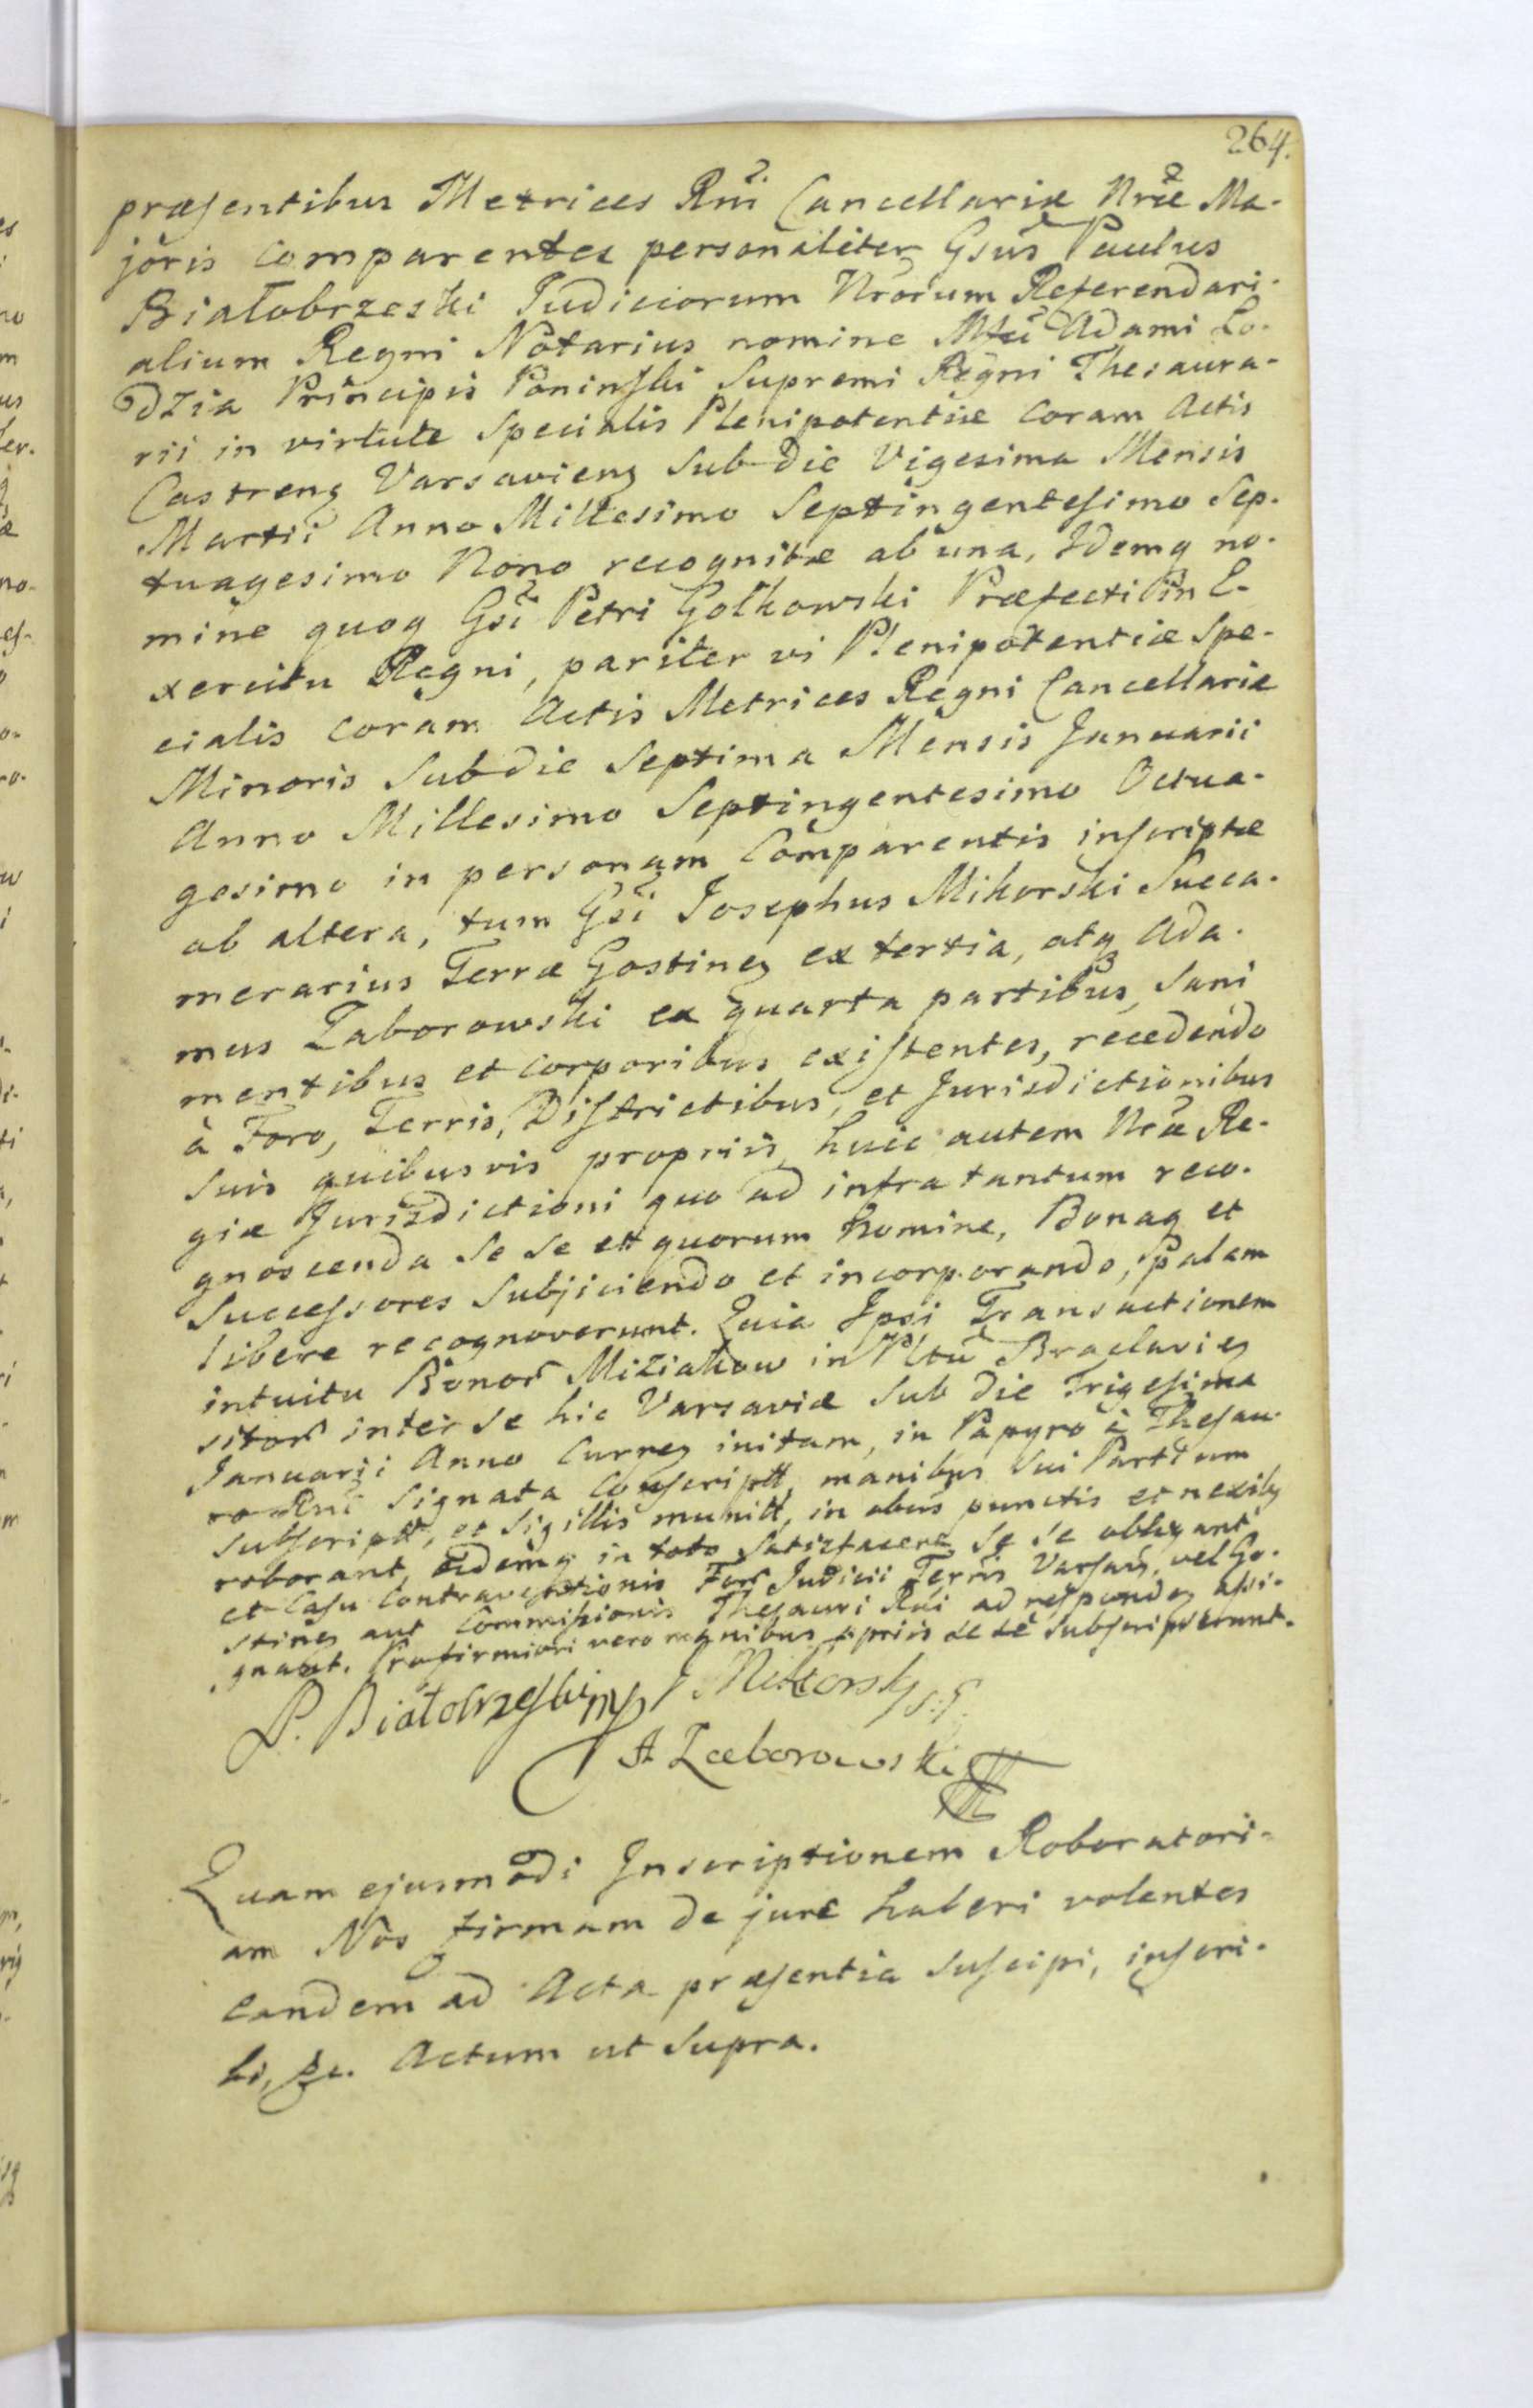 264.
præsentibus Metrices Rni Cancellariæ Nræ Ma-
joris comparentes personaliter Gsus Paulus
Białobrzeski Judiciorum Nrorum Referendari-
alium Regni Notarius nomine Mtci Adami Lo-
dzia Principis Poninski Supremi Regni Thesaura-
rii in virtute Specialis Plenipotentiæ coram Actis
Castrenӡ Varsavienӡ Sub die Vigesima Mensis
Martii Anno Millesimo Septingentesimo Sep-
tuagesimo Nono recognitæ ab una, Idemq no-
mine quoq Gsi Petri Golkowski Præfecti in E-
xercitu Regni, pariter vi Plenipotentiæ Spe-
cialis coram Actis Metrices Regni Cancellariæ
Minoris Sub die Septima Mensis Januarii
Anno Millesimo Septingentesimo Octua-
gesimo in personam Comparentis inscriptæ
ab altera, tum Gsi Josephus Mikorski Succa-
merarius Terræ Gostinenӡ ex tertia, atq Ada-
mus Zaborowski ex quarta partibus, Sani
mentibus et corporibus existentes, recedendo
à Foro, Terris, Districtibus, et Jurisdictionibus
Suis quibusvis propriis, huic autem Nræ Re-
giæ Jurisdictioni quo ad infra tantum reco-
gnoscenda Se Se et quorum Nomine, Bonaq et
Successores Subjiciendo et incorporando, Palam
libere recognoverunt. Quia Ipsi Transactionem
intuitu Bonor Miziakow in Pltu Braclavienӡ
sitor inter Se hic Varsaviæ Sub die Trigesima
Januarii Anno Currenӡ initam, in Papyro à Thesau-
ro Rni Signata Conscriptt, manibus Sui Partium
subscriptt, et Sigillis munitt, in obus punctis et nexibӡ
roborant, eidemq in toto Satisfacere Se Se obligant
et Casu Contraventionis For Judicii Terris Varsavӡ, vel Go-
stinenӡ aut Commissionis Thesauri Rni ad respondenӡ assi-
gnant. Pro firmiori vero manibus ppriis se se subscripserunt.
P. Białobrzeski mp J Mikorski S. G.
A Zaborowski
Quam ejusmodi Inscriptionem Roboratori-
am Nos firmam de jure haberi volentes
eandem ad Acta præsentia suscipi, inscri-
bi, &c. Actum ut Supra.